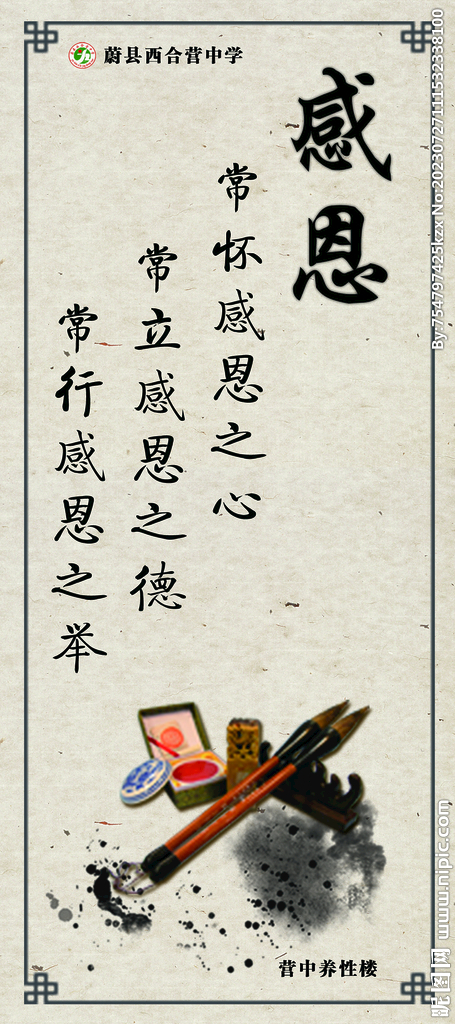 蔚县西合营中学
感恩
常怀感恩之心
常立感恩之德
常行感恩之举
营中养性楼
By:754797425kzx No:20230727111532338100
昵图网 www.nipic.com